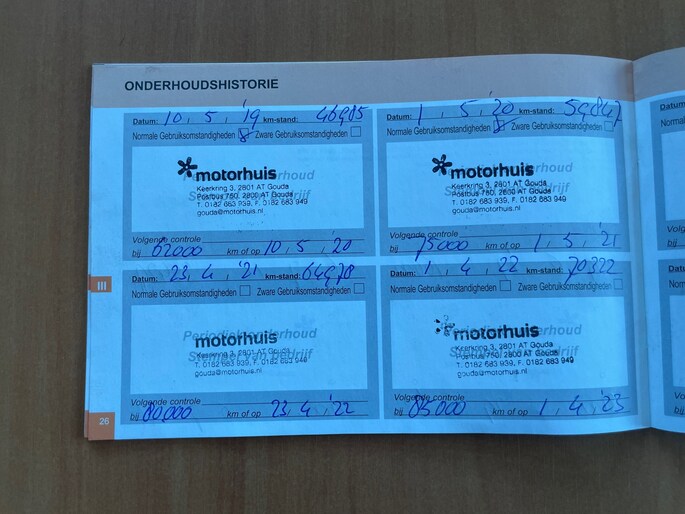 ONDERHOUDSHISTORIE
Datum: 10, 5, '19 km-stand: 46985
Normale Gebruiksomstandigheden Zware Gebruiksomstandigheden
Periodiek onderhoud
Stempel van bedrijf
motorhuis
Keerkring 3, 2801 AT Gouda
Postbus 750, 2800 AT Gouda
T. 0182 683 939, F. 0182 683 949
gouda@motorhuis.nl
Volgende controle
bij 62000 km of op 10, 5, '20
Datum: 1, 5, '20 km-stand: 59847
Normale Gebruiksomstandigheden Zware Gebruiksomstandigheden
Periodiek onderhoud
Stempel van bedrijf
motorhuis
Keerkring 3, 2801 AT Gouda
Postbus 750, 2800 AT Gouda
T. 0182 683 939, F. 0182 683 949
gouda@motorhuis.nl
Volgende controle
bij 75000 km of op 1, 5, '21
III
Datum: 23, 4, '21 km-stand: 64978
Normale Gebruiksomstandigheden Zware Gebruiksomstandigheden
Periodiek onderhoud
Stempel van bedrijf
motorhuis
Keerkring 3, 2801 AT Gouda
T. 0182 683 939, F. 0182 683 949
gouda@motorhuis.nl
Volgende controle
bij 80000 km of op 23, 4, '22
Datum: 1, 4, 22 km-stand: 70322
Normale Gebruiksomstandigheden Zware Gebruiksomstandigheden
Periodiek onderhoud
Stempel van bedrijf
motorhuis
Keerkring 3, 2801 AT Gouda
Postbus 750, 2800 AT Gouda
T. 0182 683 939, F. 0182 683 949
gouda@motorhuis.nl
Volgende controle
bij 85000 km of op 1, 4, '23
26